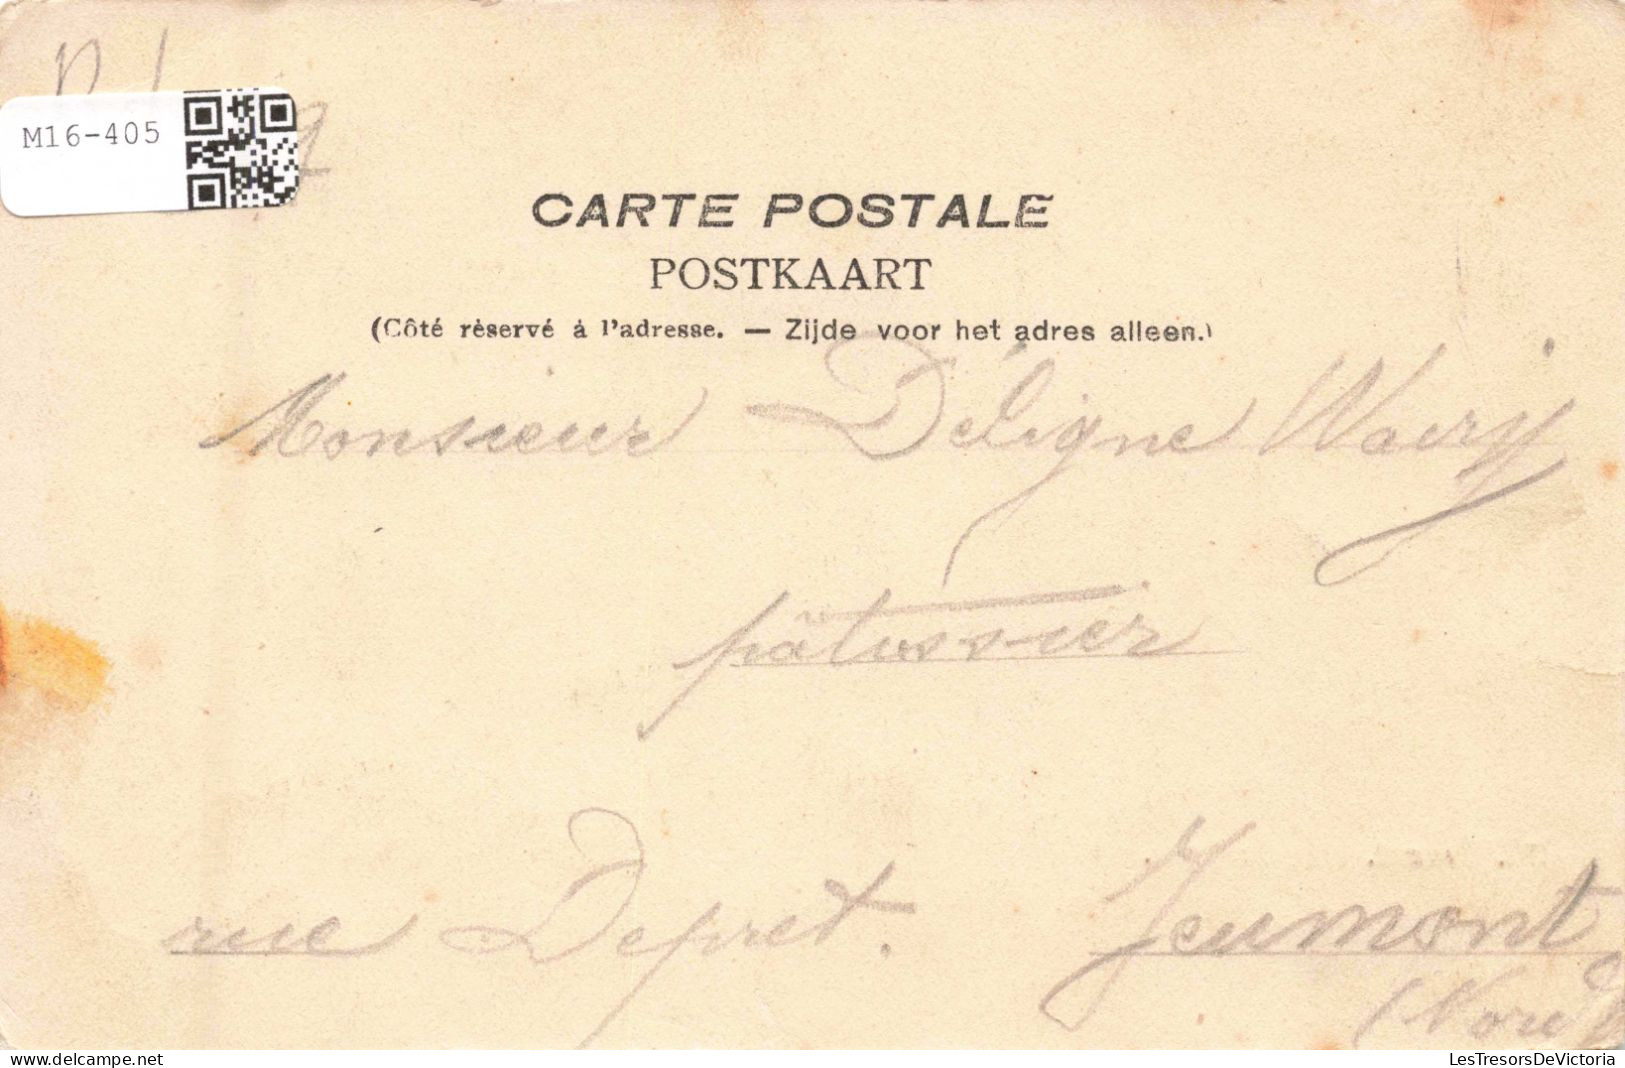 M16-405
CARTE POSTALE
POSTKAART
(Côté rèservé á l'adresse. — Zijde voor het adres alleen.)
Monsieur Déligne Waery
pâtissier
rue Depret. Jeumont
(Nord)
LesTresorsDeVictoria